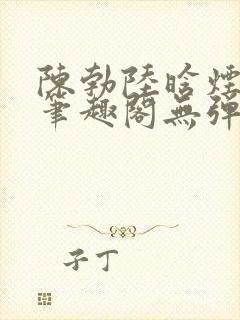 陳勃陸晗煙
筆趣閣無彈
子丁